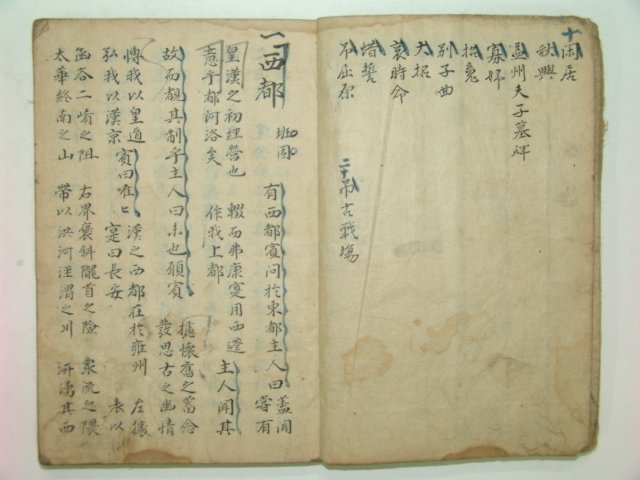 十
閑居
秋興
益州夫子墓碑
寡婦
招魂
別子曲
大招
哀時命
惜誓
吊屈原
二十 吊古戰塲
一西都
班固 有西都賓問於東都主人曰 盖聞
甞有
皇漢之初經營也 輟而弗康寔用西遷
意乎都河洛矣 作我上都 主人聞其
故而覩其制乎主人曰未也願賓 攄懷舊之蓄念
發思古之幽情
博我以皇道 漢之西都在於雍州 左據
弘我以漢京 賓曰唯〻 寔曰長安 表以
凾谷二崤之阻 右界褒斜隴首之險 衆流之隈
太華終南之山 帶以洪河涇渭之川 汧湧其西